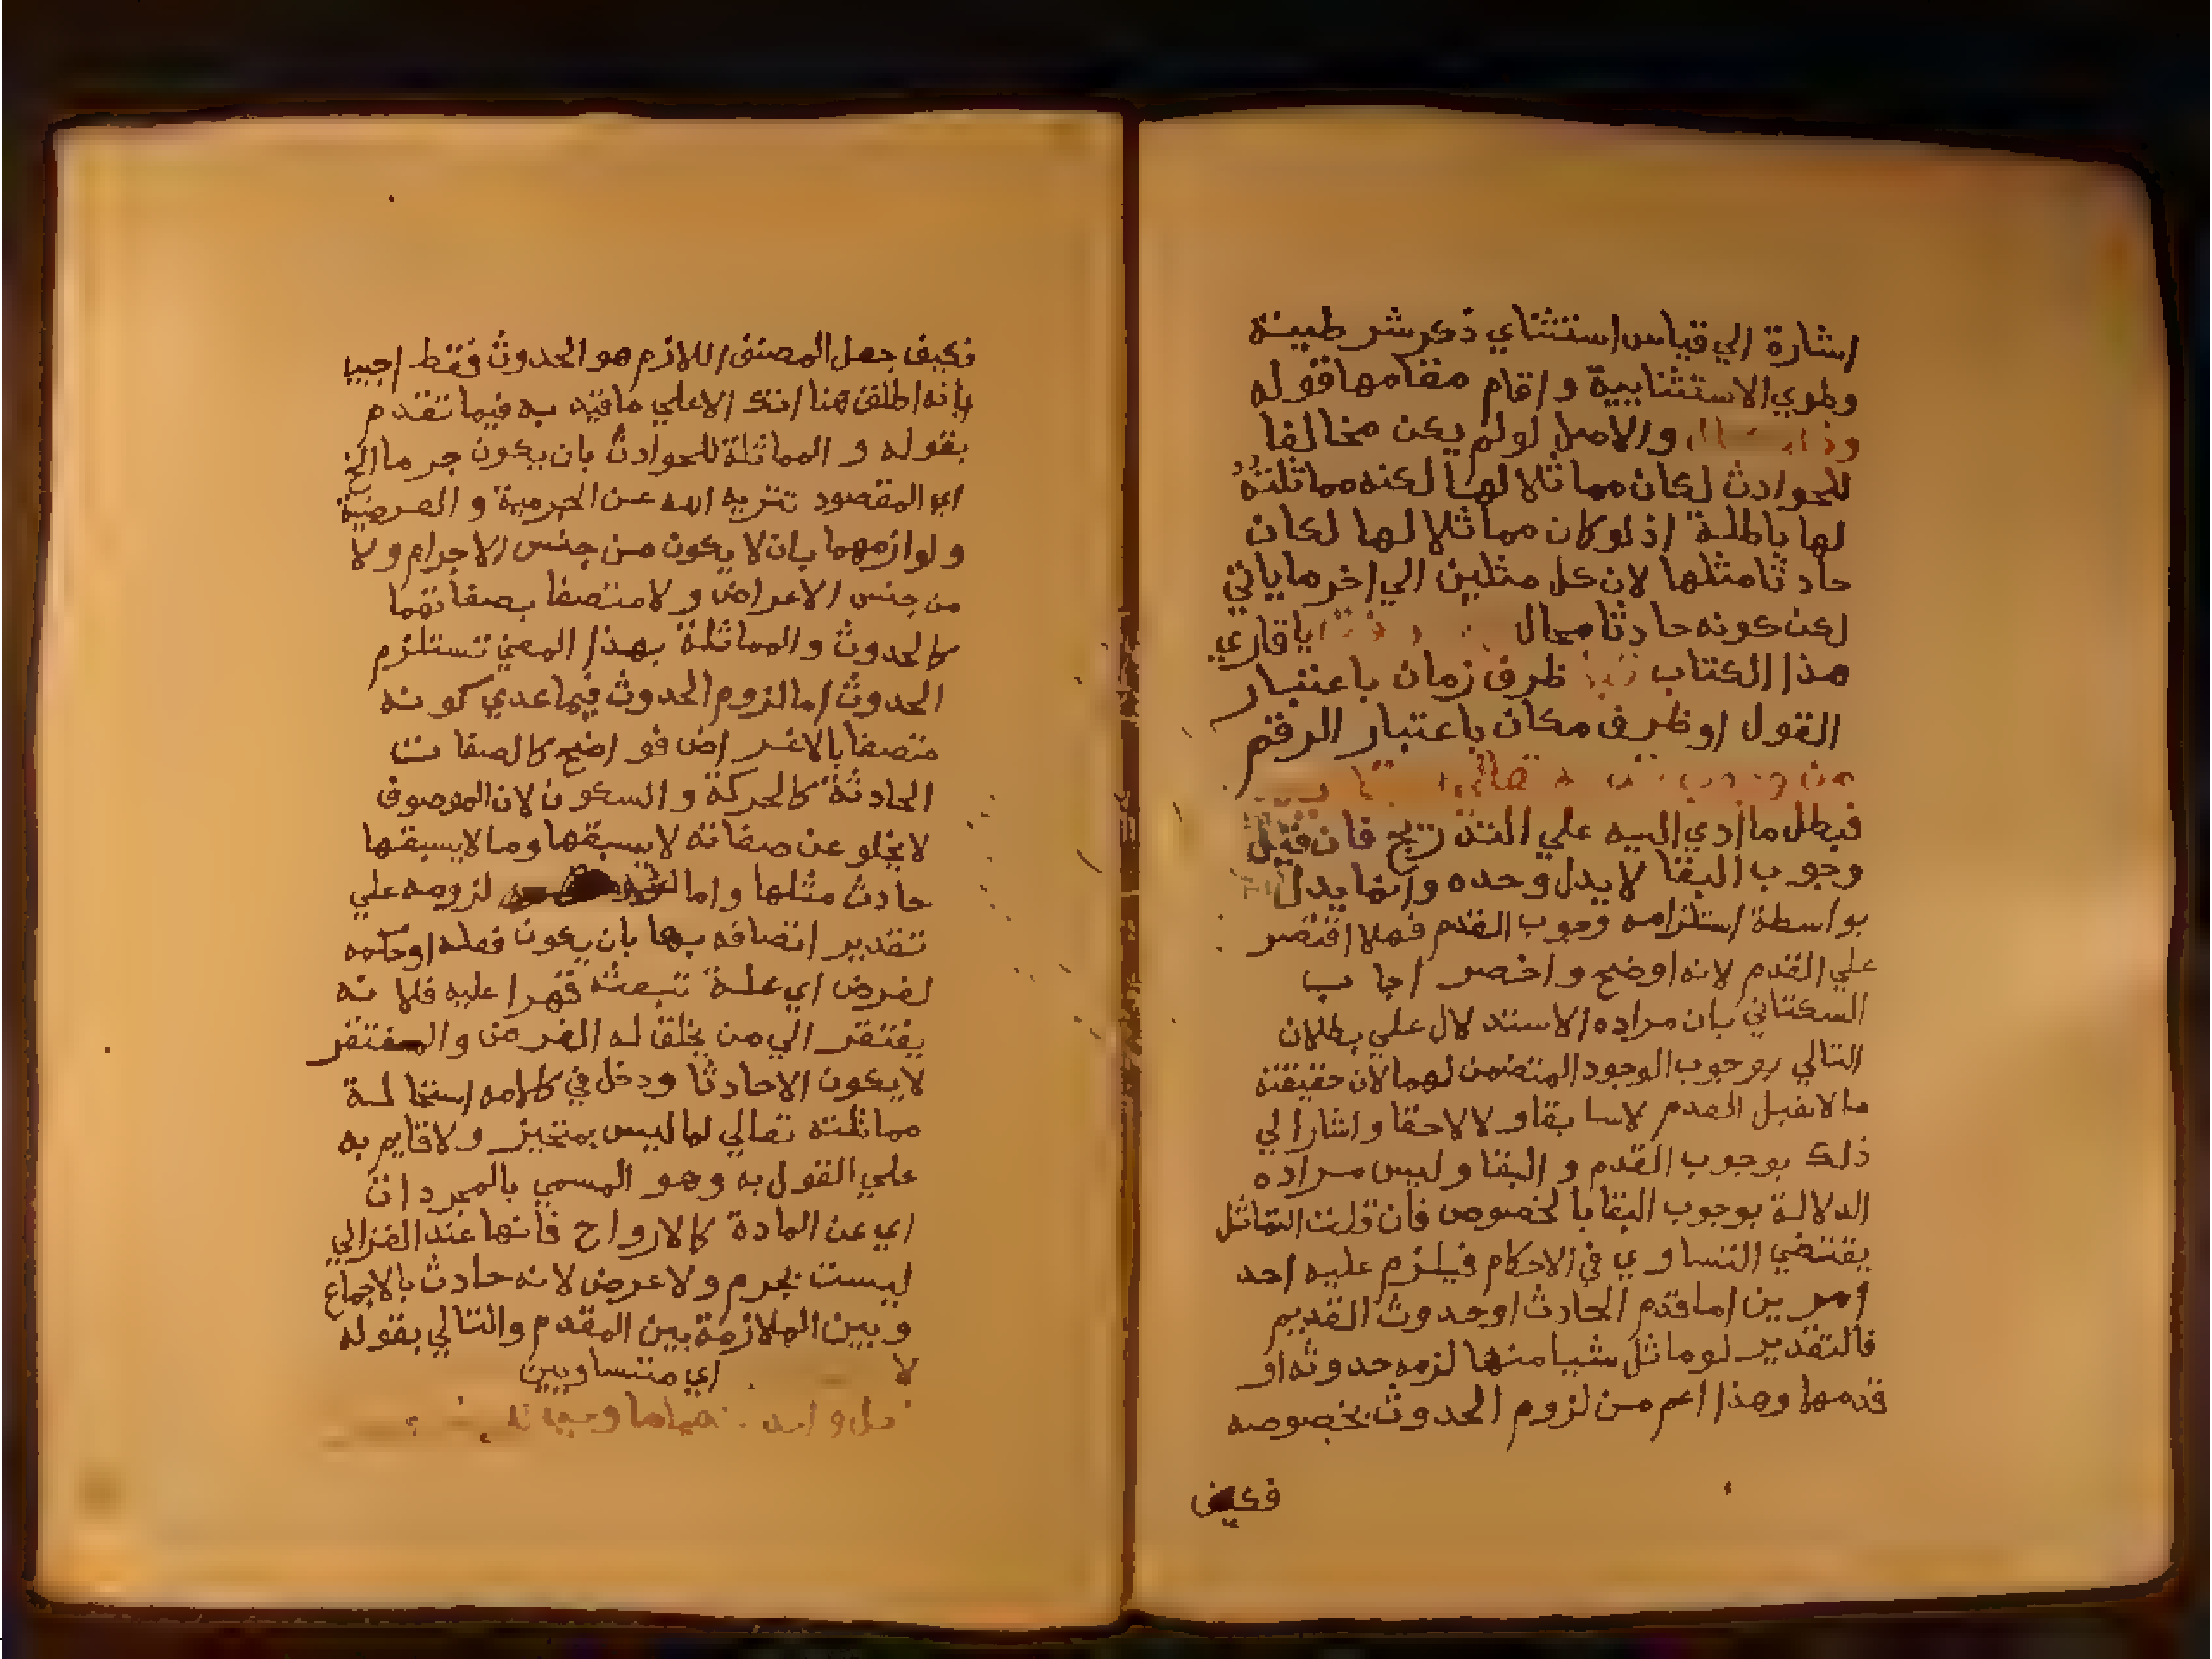 اشارة الي قياس استثناي ذكر شر طيبة
وطوي الاستثنايية و اقام مقامها قوله
والاصل لو لم يكن مخالفا
للحوادث لكان مماثلا لها لكنه مماثلته
لها باطلة اذ لو كان مماثلا لها لكان
حادثا مثلها لان كل مثلين الي اخر ما ياتي
لكن كونه حادثا محال يا قاري
هذا الكتاب ظرف زمان باعتبار
القول او ظرف مكان باعتبار الرقم
من
فبطل ما ادي اليه علي التدريج فان قيل
وجوب البقا لا يدل وحده وانما يدل
بواسطة استلزامه وجوب القدم فهلا اقتصر
علي القدم لانه اوضح و اخصر اجاب
السكتاني بان مراده الاستدلال علي بطلان
التالي بوجوب الوجود المتضمن لهما لان حقيقته
ما لا يقبل العدم لا سابقا و لا لاحقا و اشار الي
ذلك بوجوب القدم و البقا و ليس مراده
الدلالة بوجوب البقا بالخصوص فان قلت التماثل
يقتضي التساوي في الاحكام فيلزم عليه احد
امرين اما قدم الحادث او حدوث القديم
فالتقدير لو ماثل شيا منها لزمه حدوثه او
قدمها وهذا اعم من لزوم الحدوث بخصوصه
فكيف
فكيف جعل المصنف اللازم هو الحدوث فقط اجيب
بانه اطلق هنا اتكالا علي ما قيد به فيما تقدم
بقوله و المماثلة للحوادث بان يكون جرما الخ
اي المقصود تنزيه الله عن الجرمية و العرضية
و لوازمهما بان لا يكون من جنس الاجرام و لا
من جنس الاعراض و لا متصفا بصفاتهما
كالحدوث و المماثلة بهذا المعني تستلزم
الحدوث اما لزوم الحدوث فيما عدي كونه
متصفا بالاغراض فواضح كالصفات
الحادثة كالحركة و السكون لان الموصوف
لا يخلو عن صفاته لا يسبقها وما لا يسبقها
حادث مثلها و اما لزومه علي
تقدير اتصافه بها بان يكون فعله او حكمه
لغرض اي علة تبعثه قهرا عليه فلانه
يفتقر الي من يخلق له الغرض و المفتقر
لا يكون الا حادثا ودخل في كلامه استحالة
مماثلته تعالي لما ليس بمتحيز و لا قايم به
علي القول به وهو المسمي بالمجردات
اي عن المادة كالارواح فانها عند الغزالي
ليست بجرم و لا عرض لانه حادث بالاجماع
و بين الملازمة بين المقدم والتالي بقوله
لا اي متساويين